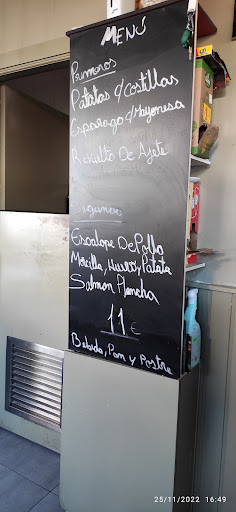 MENÚ
Primeros
Patatas c/Costillas
Esparago c/Mayonesa
Revuelto De Ajete
Segundos
Escalope De Pollo
Morcilla, Huevo, Patata
Salmon Plancha
11€
Bebida, Pan y Postre
25/11/2022 16:49